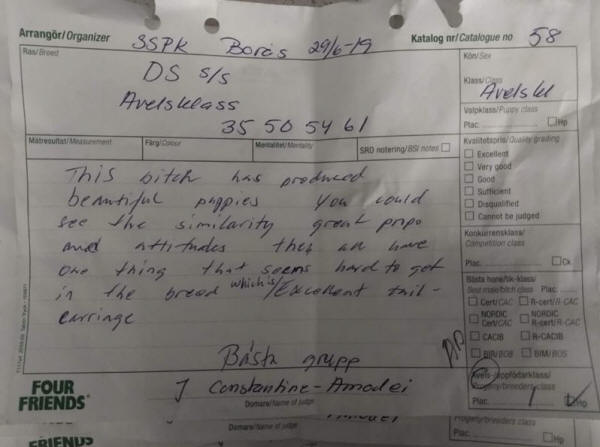 Arrangör/Organizer SSPK Borås 29/6-19 Katalog nr/Catalogue no 58
Ras/Breed DS s/s
Avelsklass
35 50 54 61
Kön/Sex
Klass/Class
Avelskl
Valpklass/Puppy class
Plac. Hp
Mätresultat/Measurement Färg/Colour Mentalitet/Mentality SRD notering/BSI notes
Kvalitetspris/Quality grading
Excellent
Very good
Good
Sufficient
Disqualified
Cannot be judged
This bitch has produced
beautiful puppies You could
see the similarity great propo
and attitudes they all have
one thing that seems hard to get
in the breed which is/Excellent tail-
carriage
Konkurrensklass/
Competition class
Plac. Ck
Bästa hane/tik-klass/
Best male/bitch class Plac.
Cert/CAC R-cert/R-CAC
NORDIC Cert/CAC NORDIC R-cert/R-CAC
CACIB R-CACIB
BIR/BOB BIM/BOS
Bästa grupp
Avels-/uppfödarklass/
Progeny/breeders class
Plac. 1 Hp
J Constantine-Amodei
Domare/Name of judge
FOUR
FRIENDS
Domare/Name of judge
Progeny/breeders class
Plac. Hp
FRIENDS